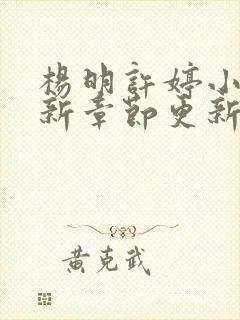 楊明許婷小
新章節更新
黃克武